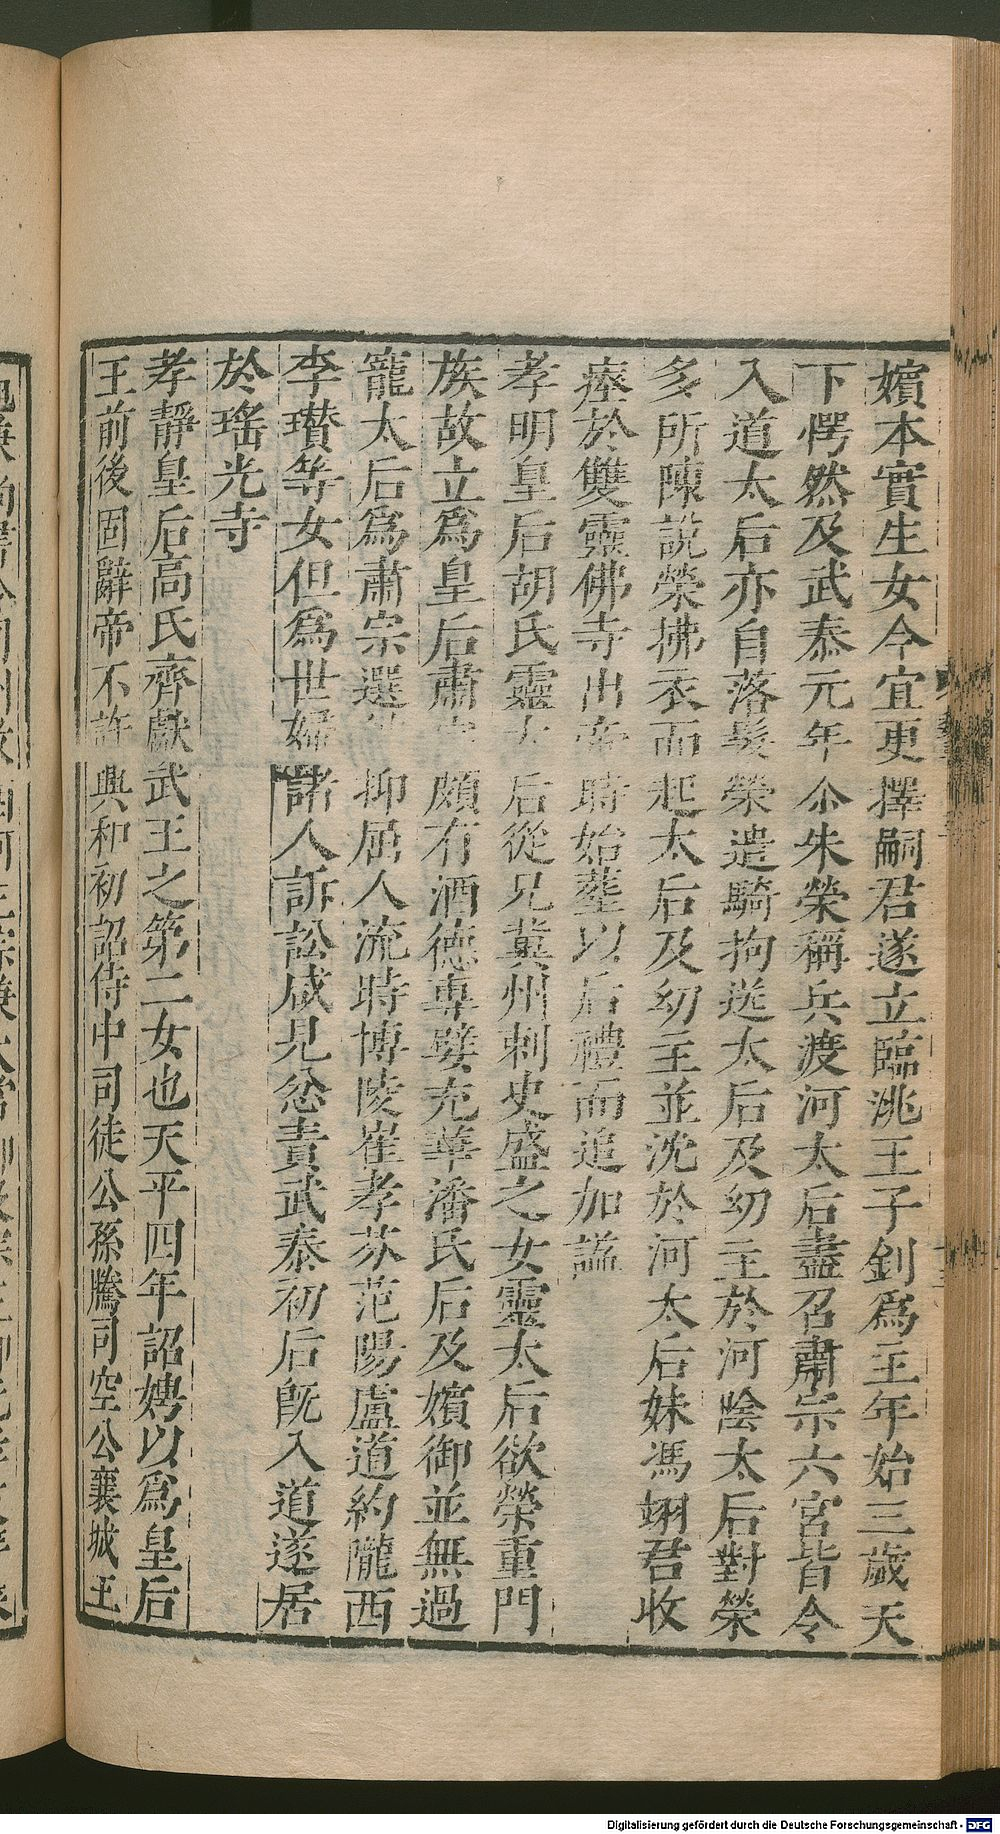 嬪本實生女今宜更擇嗣君遂立臨洮王子釗爲主年始三歲天
下愕然及武泰元年尒朱榮稱兵渡河太后盡召肅宗六宮皆令
入道太后亦自落髮榮遣騎拘送太后及幼主於河陰太后對榮
多所陳說榮拂衣而起太后及幼主並沈於河太后妹馮翊君收
瘞於雙靈佛寺出帝時始葬以后禮而追加諡
孝明皇后胡氏靈太后從兄冀州刺史盛之女靈太后欲榮重門
族故立爲皇后肅宗頗有酒德專嬖充華潘氏后及嬪御並無過
寵太后爲肅宗選 抑屈人流時博陵崔孝芬范陽盧道約隴西
李瓚等女但爲世婦諸人訴訟咸見忿責武泰初后旣入道遂居
於瑤光寺
孝靜皇后高氏齊獻武王之第二女也天平四年詔娉以爲皇后
王前後固辭帝不許興和初詔侍中司徒公孫騰司空公襄城王
Digitalisierung gefördert durch die Deutsche Forschungsgemeinschaft - DFG